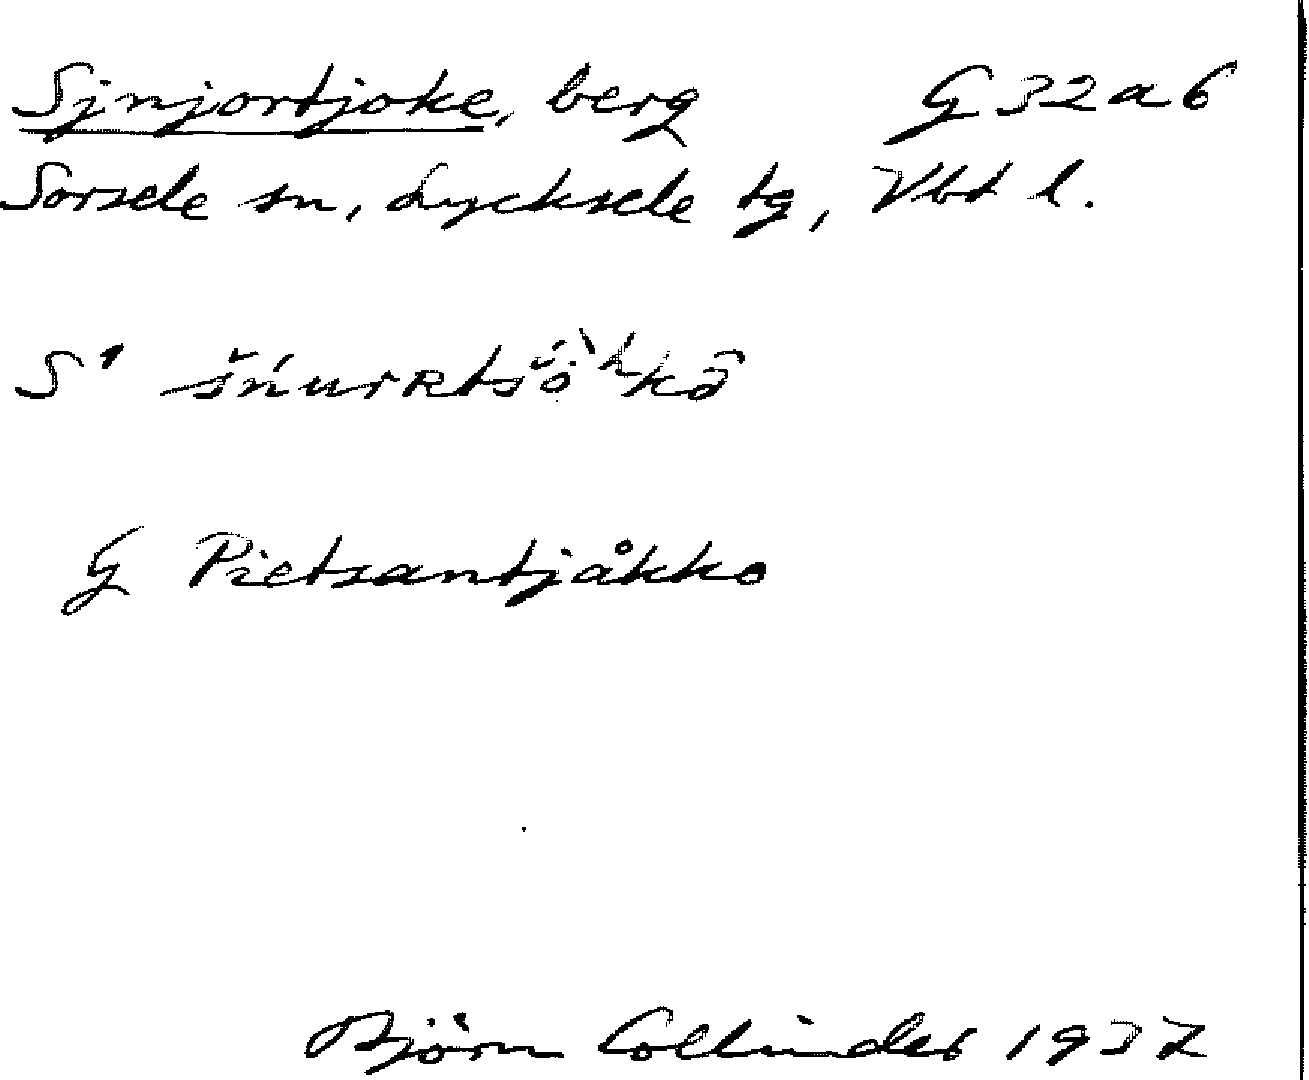 Sjnjortjoke, berg G 32 a 6
Sorsele sn, Lycksele tg, Vbt l.
G Pietsantjåkko
Björn Collinder 1937